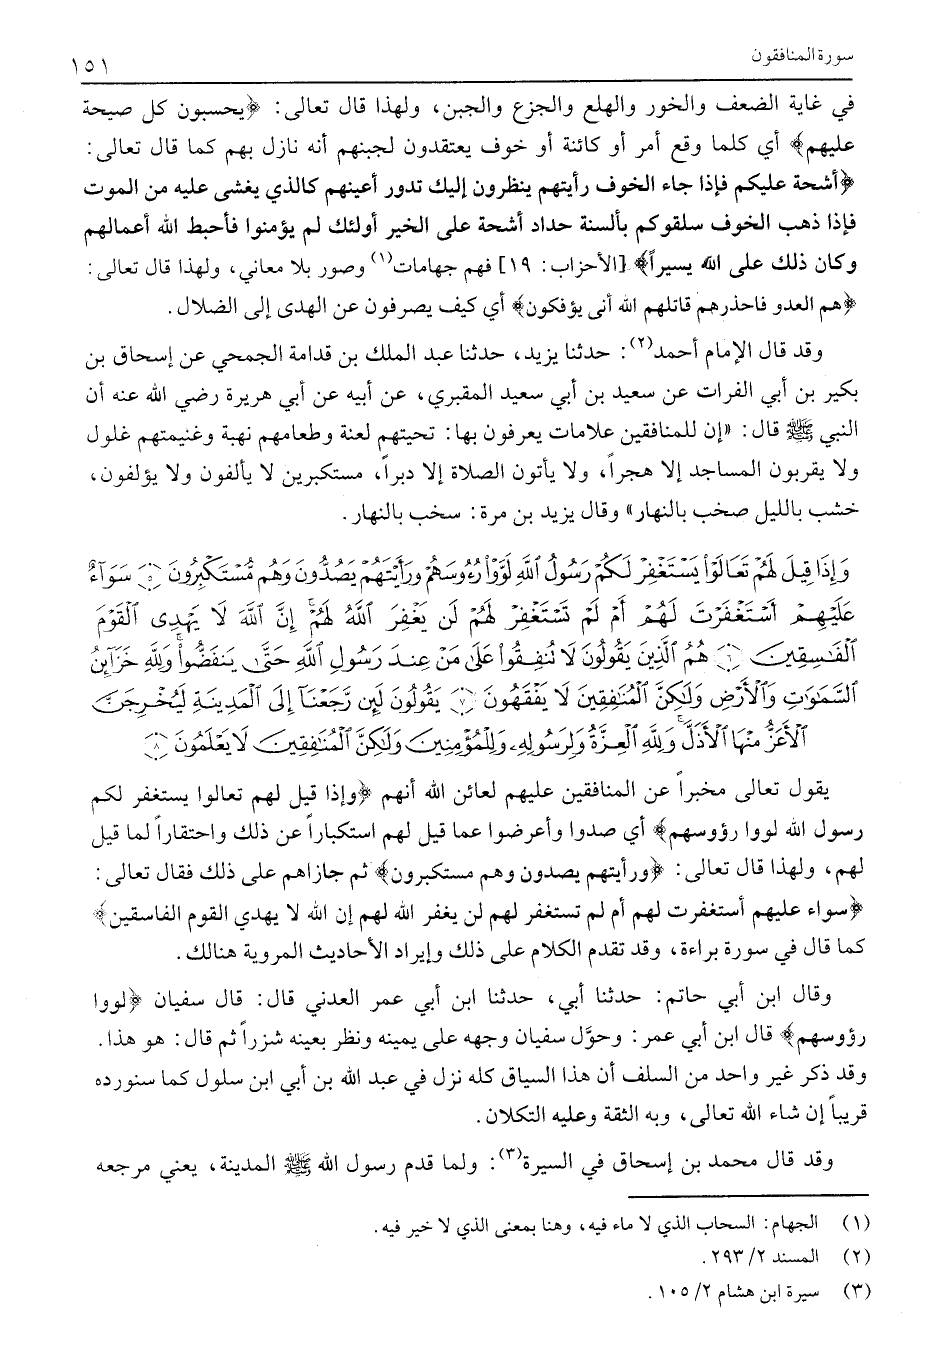 سورة المنافقون
١٥١
في غاية الضعف والخور والهلع والجزع والجبن، ولهذا قال تعالى: ﴿يحسبون كل صيحة
عليهم﴾ أي كلما وقع أمر أو كائنة أو خوف يعتقدون لجبنهم أنه نازل بهم كما قال تعالى:
﴿أشحة عليكم فإذا جاء الخوف رأيتهم ينظرون إليك تدور أعينهم كالذي يغشى عليه من الموت
فإذا ذهب الخوف سلقوكم بألسنة حداد أشحة على الخير أولئك لم يؤمنوا فأحبط الله أعمالهم
وكان ذلك على الله يسيراً﴾ [الأحزاب: ١٩] فهم جهامات(١) وصور بلا معاني، ولهذا قال تعالى:
﴿هم العدو فاحذرهم قاتلهم الله أنى يؤفكون﴾ أي كيف يصرفون عن الهدى إلى الضلال.
وقد قال الإمام أحمد(٢): حدثنا يزيد، حدثنا عبد الملك بن قدامة الجمحي عن إسحاق بن
بكير بن أبي الفرات عن سعيد بن أبي سعيد المقبري، عن أبيه عن أبي هريرة رضي الله عنه أن
النبي ﷺ قال: «إن للمنافقين علامات يعرفون بها: تحيتهم لعنة وطعامهم نهبة وغنيمتهم غلول
ولا يقربون المساجد إلا هجراً، ولا يأتون الصلاة إلا دبراً، مستكبرين لا يألفون ولا يؤلفون،
خشب بالليل صخب بالنهار» وقال يزيد بن مرة: سخب بالنهار.
وَإِذَا قِيلَ لَهُمْ تَعَالَوْا۟ يَسْتَغْفِرْ لَكُمْ رَسُولُ ٱللَّهِ لَوَّوْا۟ رُءُوسَهُمْ وَرَأَيْتَهُمْ يَصُدُّونَ وَهُم مُّسْتَكْبِرُونَ ٥ سَوَآءٌ
عَلَيْهِمْ أَسْتَغْفَرْتَ لَهُمْ أَمْ لَمْ تَسْتَغْفِرْ لَهُمْ لَن يَغْفِرَ ٱللَّهُ لَهُمْ ۚ إِنَّ ٱللَّهَ لَا يَهْدِى ٱلْقَوْمَ
ٱلْفَـٰسِقِينَ ٦ هُمُ ٱلَّذِينَ يَقُولُونَ لَا تُنفِقُوا۟ عَلَىٰ مَنْ عِندَ رَسُولِ ٱللَّهِ حَتَّىٰ يَنفَضُّوا۟ ۗ وَلِلَّهِ خَزَآئِنُ
ٱلسَّمَـٰوَٰتِ وَٱلْأَرْضِ وَلَـٰكِنَّ ٱلْمُنَـٰفِقِينَ لَا يَفْقَهُونَ ٧ يَقُولُونَ لَئِن رَّجَعْنَآ إِلَى ٱلْمَدِينَةِ لَيُخْرِجَنَّ
ٱلْأَعَزُّ مِنْهَا ٱلْأَذَلَّ ۚ وَلِلَّهِ ٱلْعِزَّةُ وَلِرَسُولِهِۦ وَلِلْمُؤْمِنِينَ وَلَـٰكِنَّ ٱلْمُنَـٰفِقِينَ لَا يَعْلَمُونَ ٨
يقول تعالى مخبراً عن المنافقين عليهم لعائن الله أنهم ﴿وإذا قيل لهم تعالوا يستغفر لكم
رسول الله لووا رؤوسهم﴾ أي صدوا وأعرضوا عما قيل لهم استكباراً عن ذلك واحتقاراً لما قيل
لهم، ولهذا قال تعالى: ﴿ورأيتهم يصدون وهم مستكبرون﴾ ثم جازاهم على ذلك فقال تعالى:
﴿سواء عليهم أستغفرت لهم أم لم تستغفر لهم لن يغفر الله لهم إن الله لا يهدي القوم الفاسقين﴾
كما قال في سورة براءة، وقد تقدم الكلام على ذلك وإيراد الأحاديث المروية هنالك.
وقال ابن أبي حاتم: حدثنا أبي، حدثنا ابن أبي عمر العدني قال: قال سفيان ﴿لووا
رؤوسهم﴾ قال ابن أبي عمر: وحوَّل سفيان وجهه على يمينه ونظر بعينه شزراً ثم قال: هو هذا.
وقد ذكر غير واحد من السلف أن هذا السياق كله نزل في عبد الله بن أبي ابن سلول كما سنورده
قريباً إن شاء الله تعالى، وبه الثقة وعليه التكلان.
وقد قال محمد بن إسحاق في السيرة(٣): ولما قدم رسول الله ﷺ المدينة، يعني مرجعه
(١) الجهام: السحاب الذي لا ماء فيه، وهنا بمعنى الذي لا خير فيه.
(٢) المسند ٢/ ٢٩٣.
(٣) سيرة ابن هشام ٢/ ١٠٥.